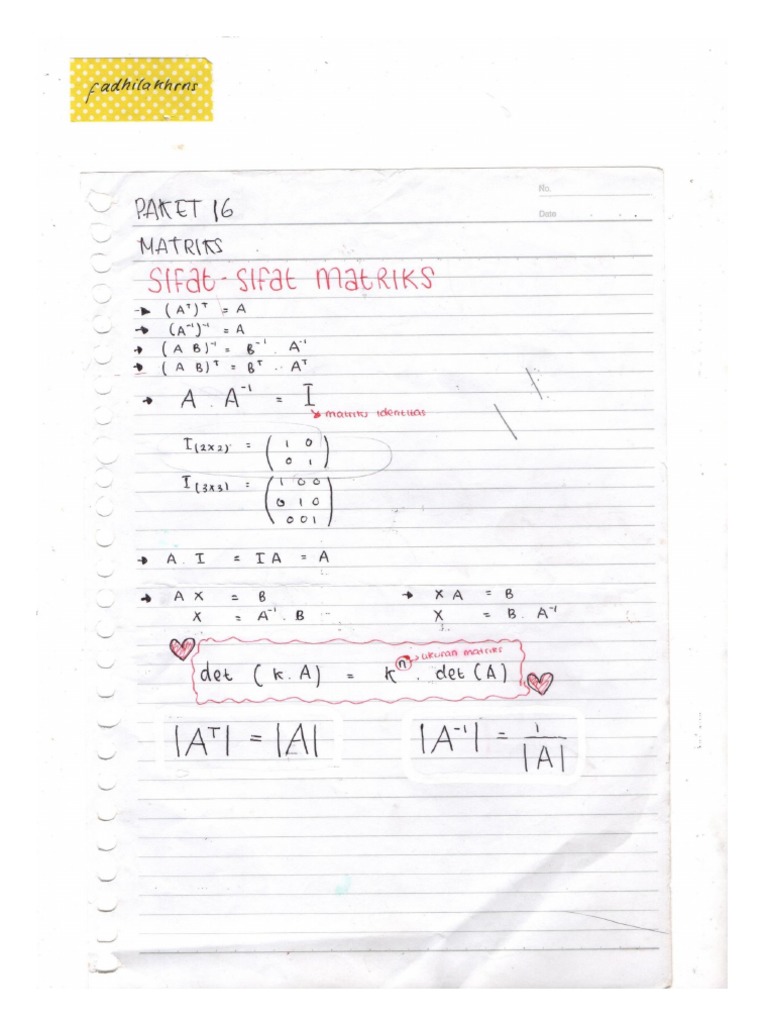 fadhilakhrns
No.
Date
PAKET 16
MATRIKS
Sifat-Sifat MatRIKS
→ (Aᵀ)ᵀ = A
→ (A⁻¹)⁻¹ = A
→ (A B)⁻¹ = B⁻¹ . A⁻¹
→ (A B)ᵀ = Bᵀ . Aᵀ
→ A . A⁻¹ = I
→ matriks identitas
I(2x2) = ( 1 0
0 1 )
I(3x3) = ( 1 0 0
0 1 0
0 0 1 )
→ A . I = I A = A
→ A X = B → X A = B
X = A⁻¹ . B X = B . A⁻¹
→ ukuran matriks
det (k . A) = kⁿ . det (A)
|Aᵀ| = |A| |A⁻¹| = 1
|A|